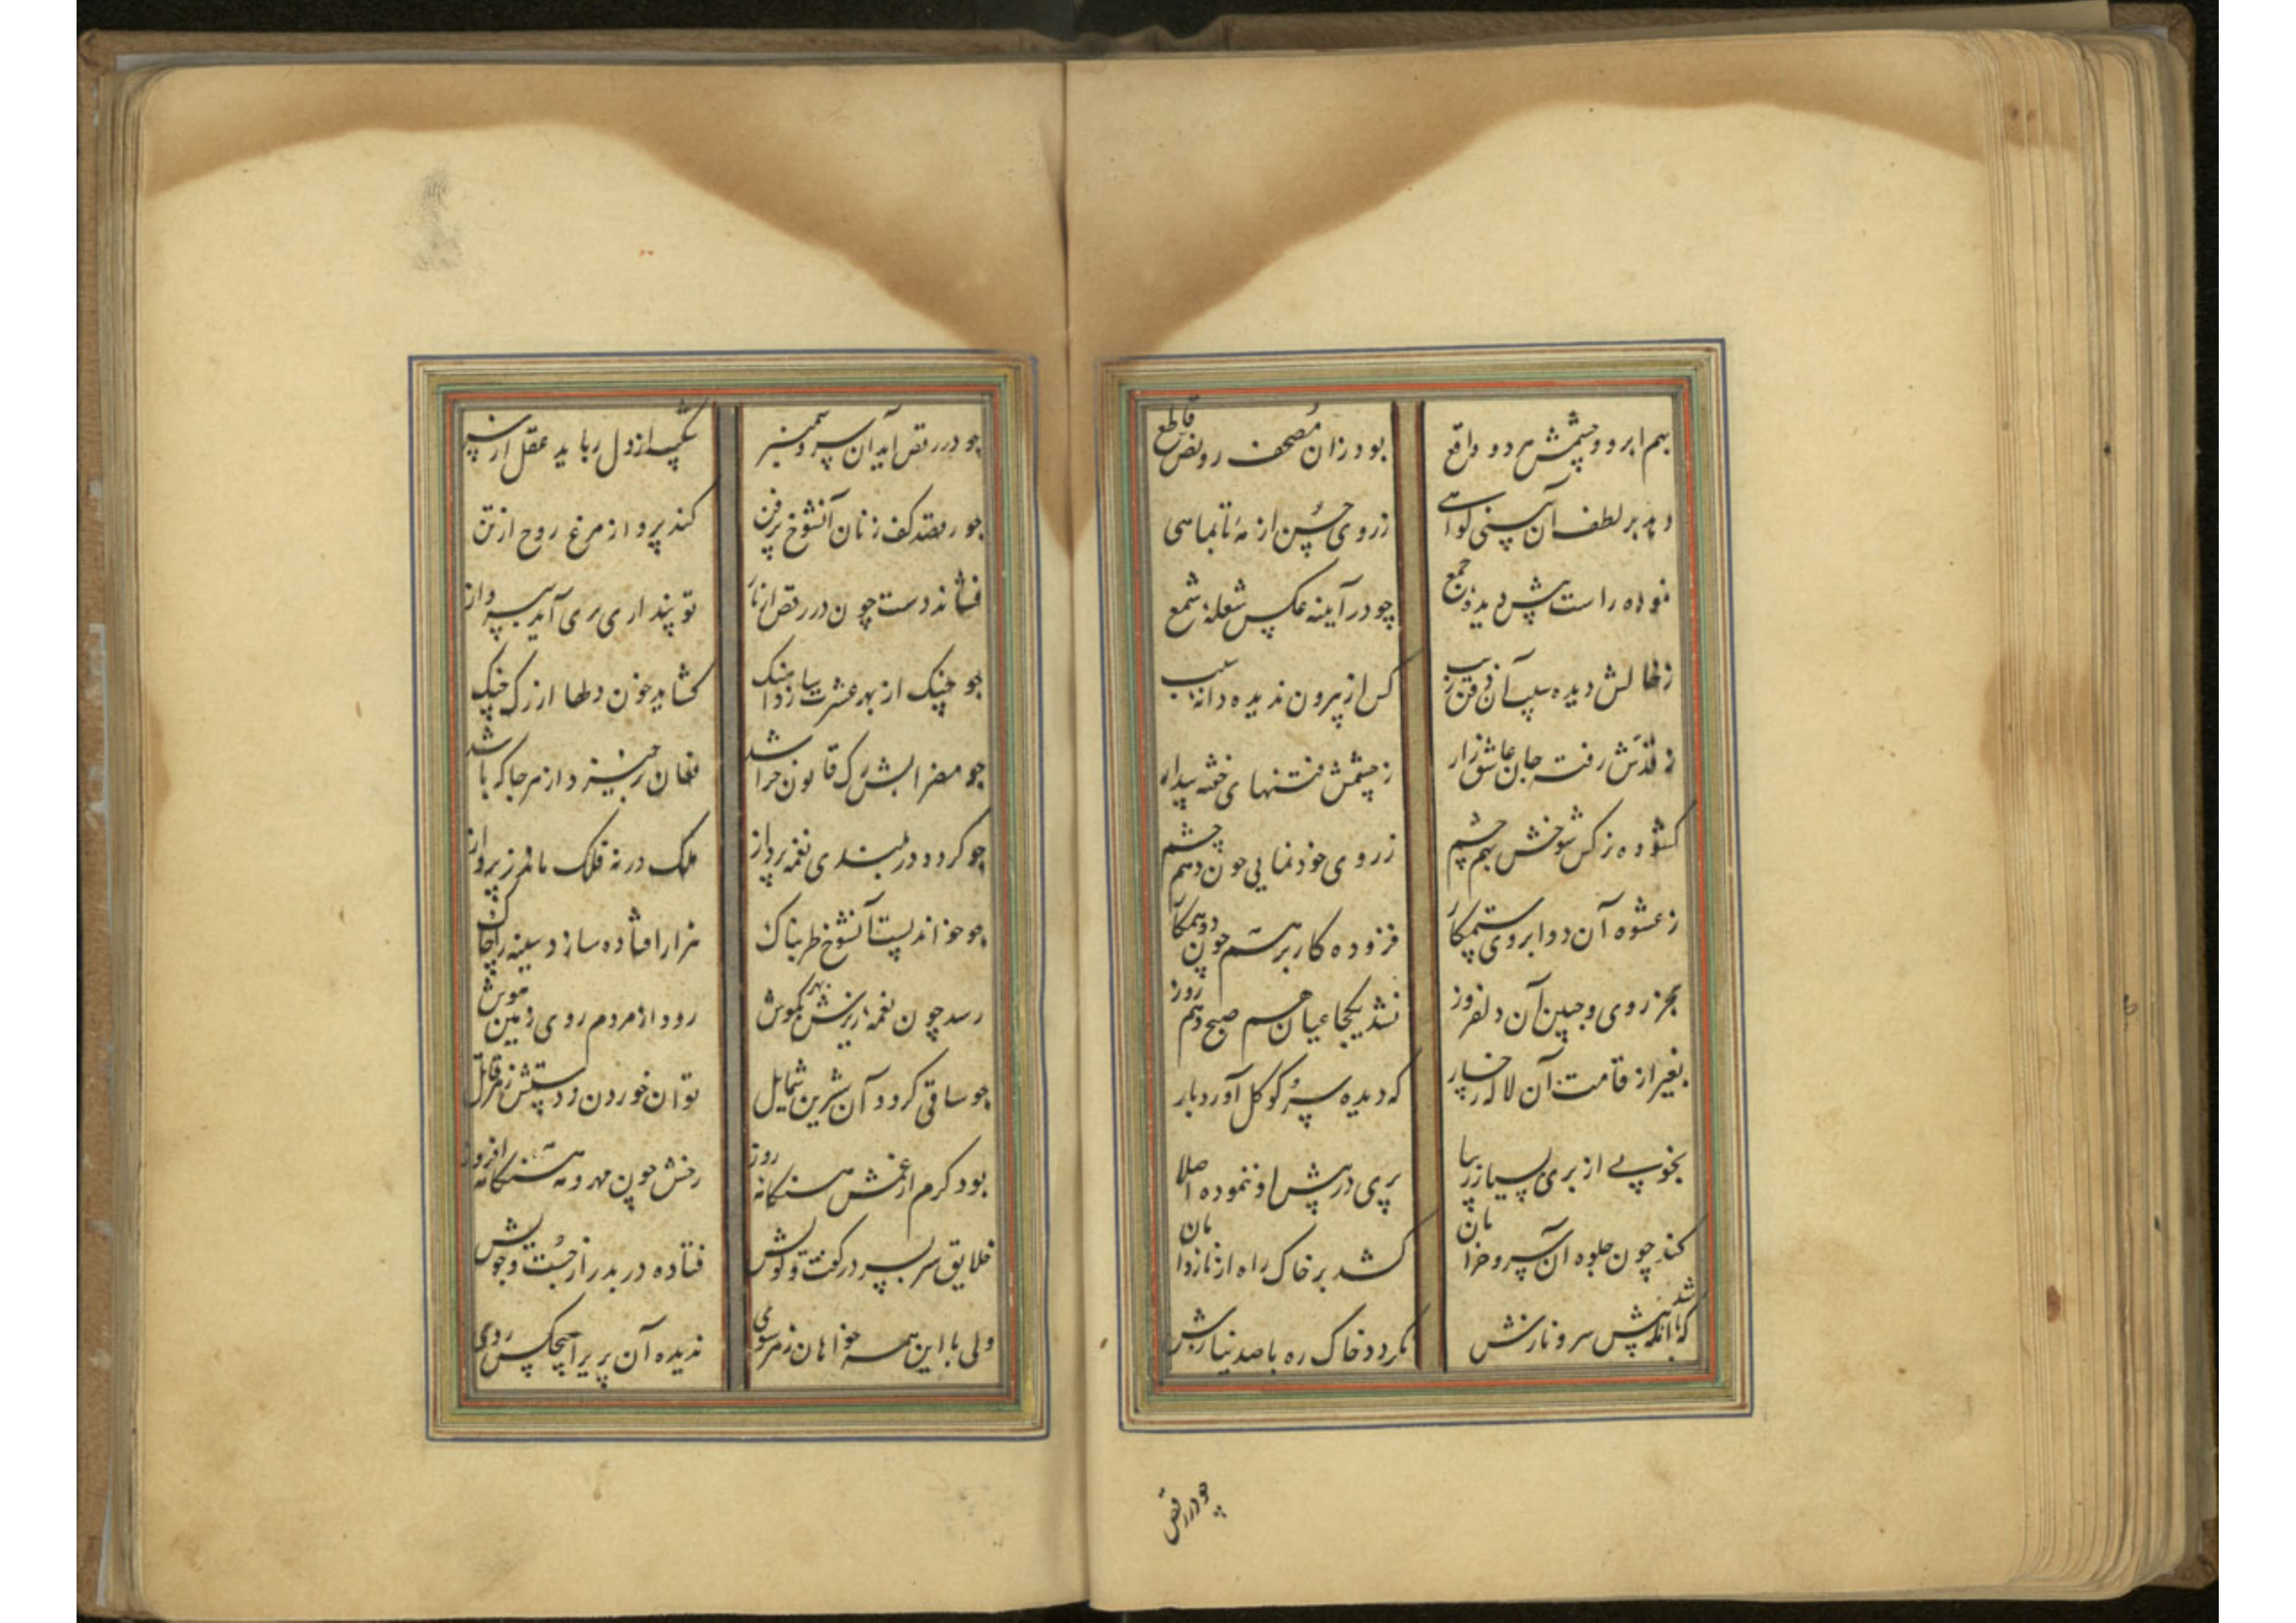 بهم ابرو و چشمش هر دو واقع
بود زان مصحف رو نص قاطع
دهد بر لطف آن بینی گواهی
ز روی حسن از مه تا بماهی
نموده راست پیش دیده جمع
چو در آیینه عکس شعلهٔ شمع
دیده سیب آن ذقن زیب
کس از بیرون ندیده دانهٔ سیب
ز قدش رفته جان عاشق زار
ز چشمش فتنهای خفته بیدار
کشوده نرکس شوخش بهم چشم
ز روی خودنمایی چون دهم چشم
ز عشوه آن دو ابروی ستمکار
فزوده کار بر هم چون دو همکار
بجز روی و جبین آن دلفروز
نشد یکجا عیان هم صبح و هم روز
بغیر از قامت آن لاله رخسار
که دیده سرو کو کل آورد بار
بخوبی از پری بسیار زیبا
پری در پیش او ننموده اصلا
کند چون جلوه آن سرو خرامان
کشد بر خاک راه از ناز دامان
که باشد آنکه پیش سرو نازش
نکردد خاک ره با صد نیازش
چو در رقص
چو در رقص آید آن سرو سمنبر
شکیب از دل رباید عقل از سر
چو رقصد کف زنان آنشوخ پرفن
کند پرواز مرغ روح از تن
فشاند دست چون در رقص از ناز
تو پنداری پری آید بپرواز
چو چنک از بهر عشرت سازد آهنک
کشاید خون دلها از رک چنک
چو مضرابش رک قانون خراشد
فغان برخیزد از هر جا که باشد
چو کردد در بلندی نغمه پرداز
ملک در نه فلک ماند ز پرواز
چو خواند پست آنشوخ طربناک
هزار افتاده سازد سینه را چاک
رسد چون نغمهٔ زیرش بکوش
رود از مردم روی زمین هوش
چو ساقی کردد آن شیرین شمایل
توان خوردن ز دستش زهر قاتل
بود کرم از غمش هنکامه روز
رخش چون مهر و مه هنکامه افروز
خلایق سربسر در کفت و کویش
فتاده در بدر از جست و جویش
ولی با این همه خواهان ز هر سوی
ندیده آن پری را هیچکس روی